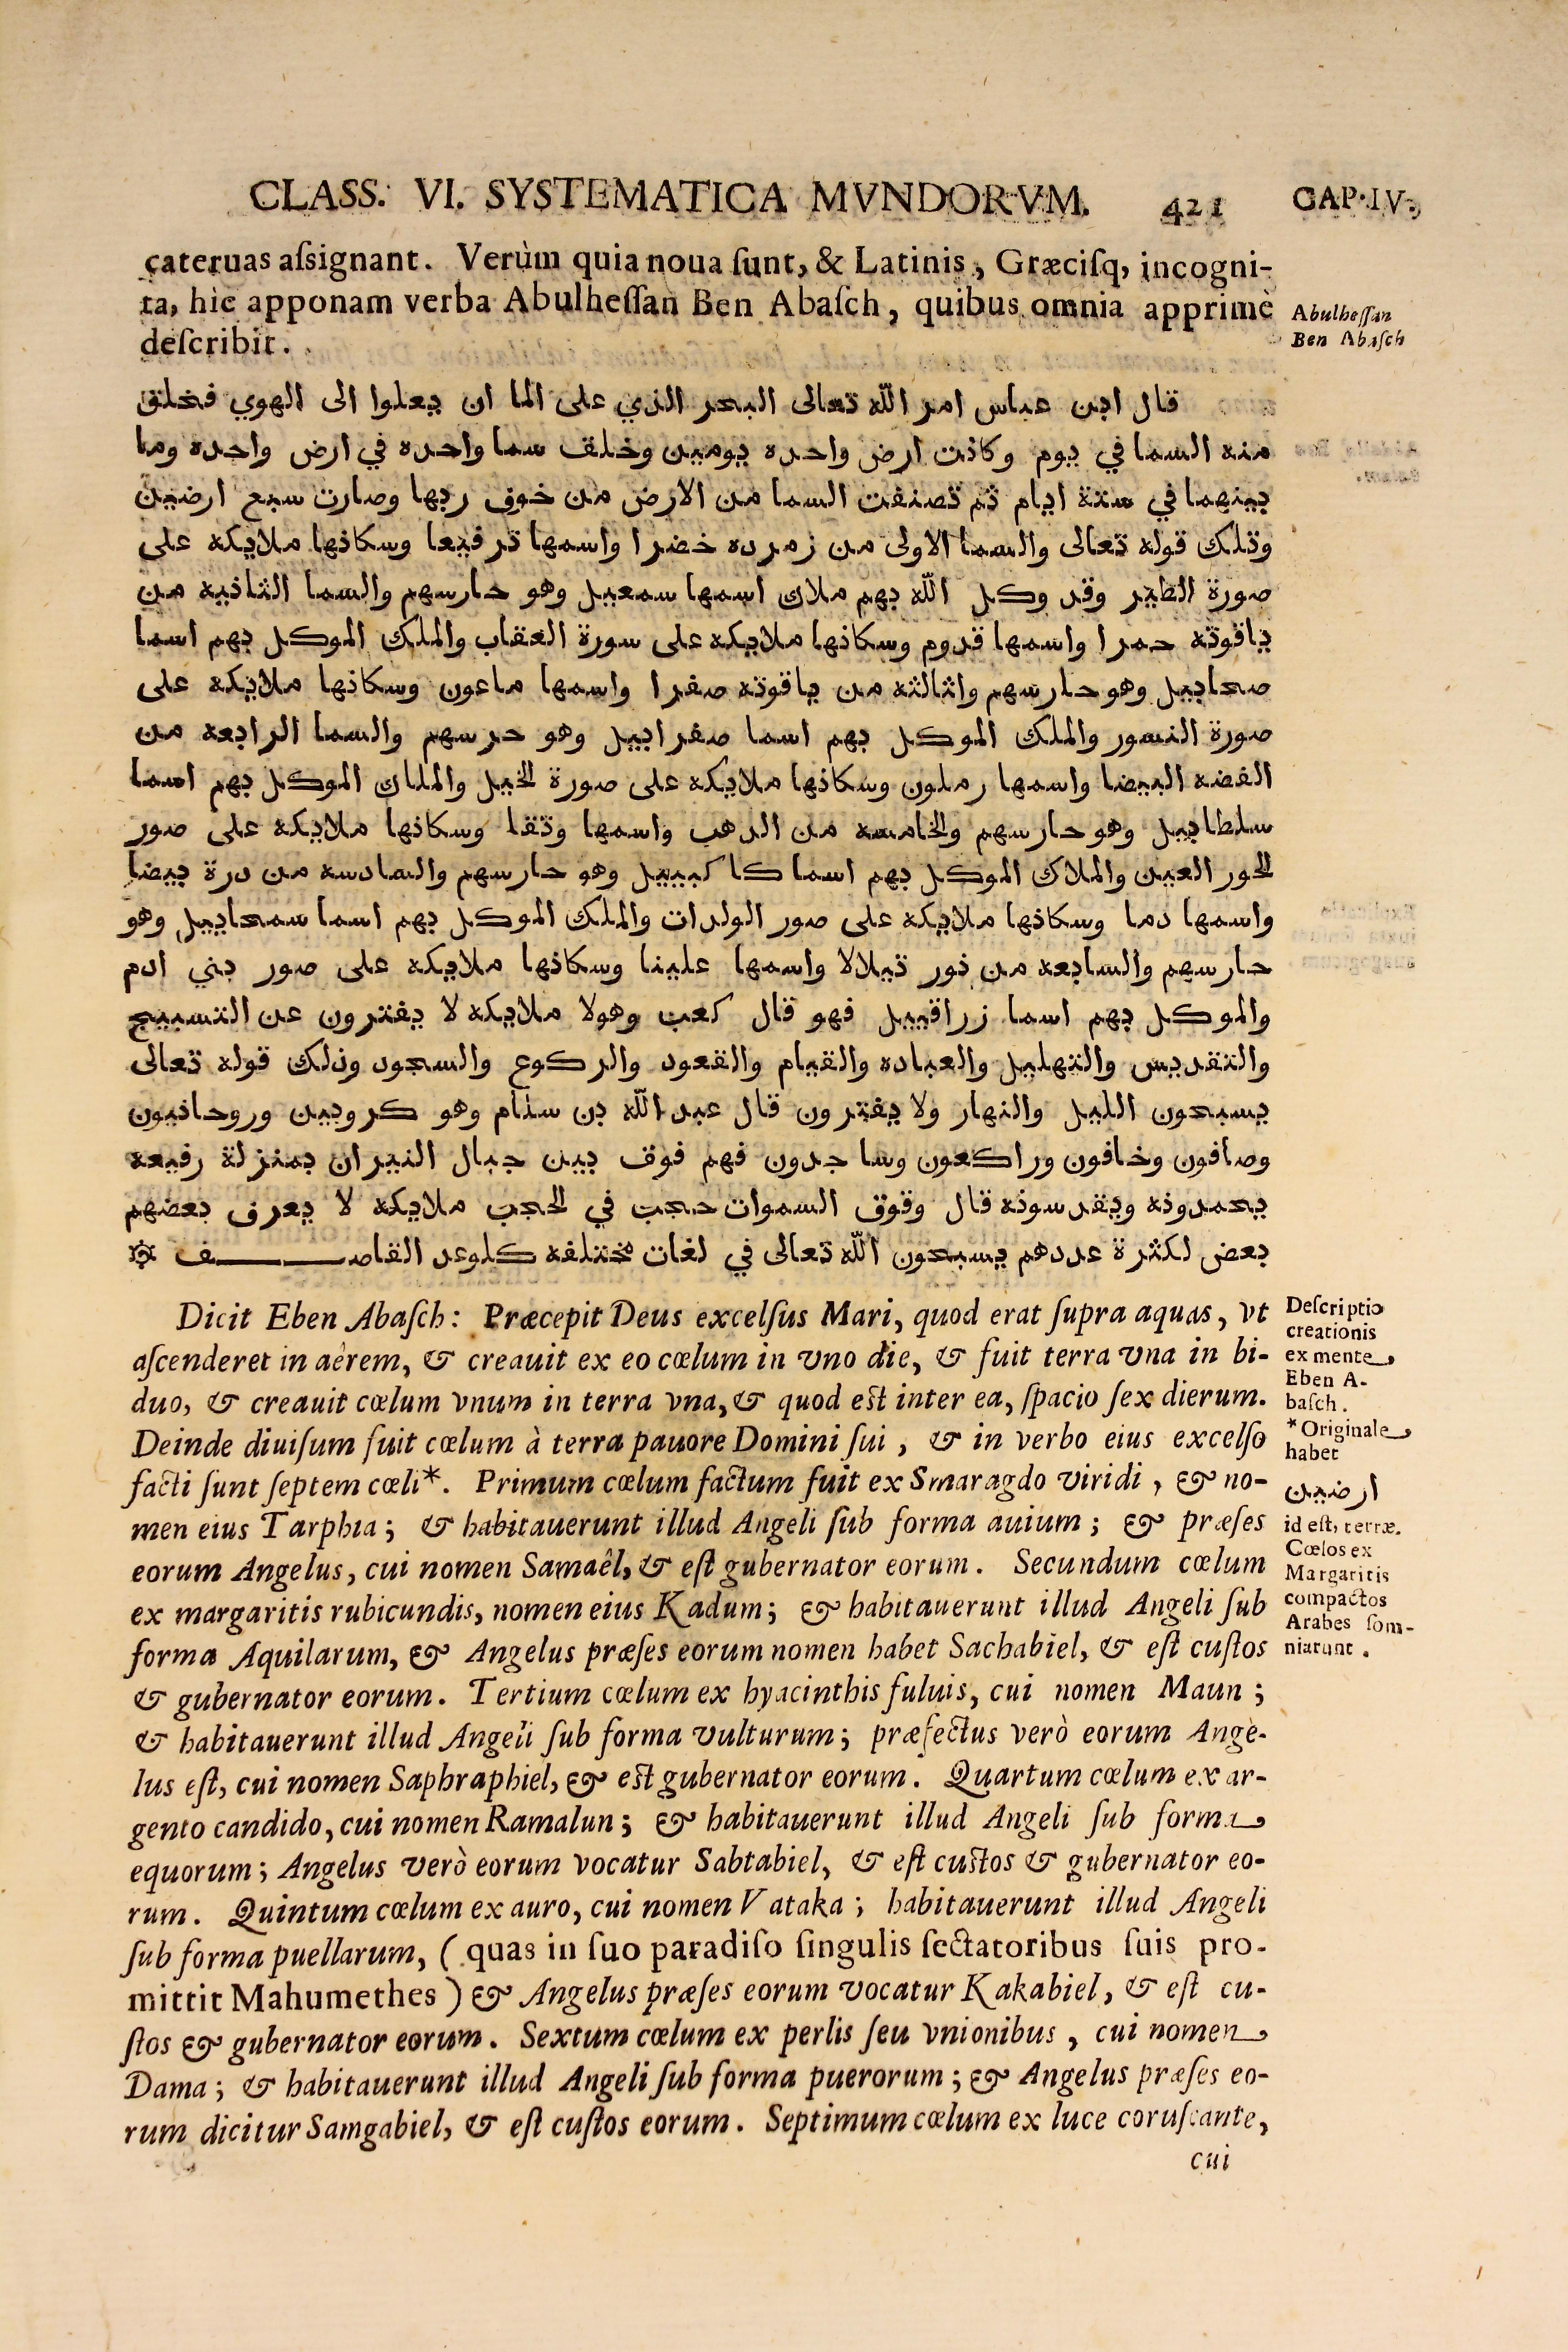 CLASS. VI. SYSTEMATICA MVNDORVM. 421 CAP. IV.
cateruas aſsignant. Verùm quia noua ſunt, & Latinis, Græciſq, incogni-
ta, hic apponam verba Abulheſſan Ben Abaſch, quibus omnia apprimè
deſcribit.
Abulheſſan
Ben Abaſch
قال ابن عباس امر اللّه تعالى البحر الذي على الما ان يعلوا الى الهوي فخلق
منه السما في يوم وكانت ارض واحده يومين وخلف سما واحده في ارض واحده وما
بينهما في ستة ايام ثم تصنفت السما من الارض من خوف ربها وصارت سبع ارضين
وتلك قوله تعالى والسما الاولى من زمرده خضرا واسمها ترفيعا وسكانها ملايكه على
صورة الطير وقد وكل اللّه بهم ملاك اسمها سمعيل وهو حارسهم والسما الثانيه من
ياقوته حمرا واسمها قدوم وسكانها ملايكه على سورة العقاب والملك الموكل بهم اسما
صحابيل وهو حارسهم واثالثه من ياقوته صفرا واسمها ماعون وسكانها ملايكه على
صورة النسور والملك الموكل بهم اسما صفرابيل وهو حرسهم والسما الرابعه من
الفضه البيضا واسمها رملون وسكانها ملايكه على صورة الخيل والملاك الموكل بهم اسما
سلطابيل وهو حارسهم والخامسه من الدهب واسمها وتقا وسكانها ملايكه على صور
الحور العين والملاك الموكل بهم اسما كاكبييل وهو حارسهم والسادسه من درة بيضا
واسمها دما وسكانها ملايكه على صور الولدات والملك الموكل بهم اسما سمحابيل وهو
حارسهم والسابعه من نور تيلالا واسمها علينا وسكانها ملايكه على صور بني ادم
والموكل بهم اسما زراقييل فهو قال كعب وهولا ملايكه لا يفترون عن التسبيح
والتقديس والتهليل والعباده والقيام والقعود والركوع والسجود وذلك قوله تعالى
يسبحون الليل والنهار ولا يفترون قال عبد اللّه بن سلام وهو كروبين وروحانيون
وصافون وخافون وراكعون وساجدون فهم فوق بين جبال النيران بمنزلة رفيعه
يحمدونه ويقدسونه قال وفوق السموات حجب في الحجب ملايكه لا يعرف بعضهم
بعض لكثرة عددهم يسبحون اللّه تعالى في لغات مختلفه كلوعد القاصف
Dicit Eben Abaſch: Præcepit Deus excelſus Mari, quod erat ſupra aquas, vt
aſcenderet in aërem, & creauit ex eo cœlum in vno die, & fuit terra vna in bi-
duo, & creauit cœlum vnum in terra vna, & quod est inter ea, ſpacio ſex dierum.
Deinde diuiſum fuit cœlum à terra pauore Domini ſui, & in verbo eius excelſo
facti ſunt ſeptem cœli*. Primum cœlum factum fuit ex Smaragdo viridi, & no-
men eius Tarphia; & habitauerunt illud Angeli ſub forma auium; & præſes
eorum Angelus, cui nomen Samaêl, & eſt gubernator eorum. Secundum cœlum
ex margaritis rubicundis, nomen eius Kadum; & habitauerunt illud Angeli ſub
forma Aquilarum, & Angelus præſes eorum nomen habet Sachabiel, & eſt cuſtos
& gubernator eorum. Tertium cœlum ex hyacinthis fuluis, cui nomen Maun;
& habitauerunt illud Angeli ſub forma vulturum; præfectus verò eorum Ange-
lus eſt, cui nomen Saphraphiel, & est gubernator eorum. Quartum cœlum ex ar-
gento candido, cui nomen Ramalun; & habitauerunt illud Angeli ſub forma
equorum; Angelus verò eorum vocatur Sabtabiel, & eſt custos & gubernator eo-
rum. Quintum cœlum ex auro, cui nomen Vataka; habitauerunt illud Angeli
ſub forma puellarum, (quas in ſuo paradiſo ſingulis ſectatoribus ſuis pro-
mittit Mahumethes) & Angelus præſes eorum vocatur Kakabiel, & eſt cu-
ſtos & gubernator eorum. Sextum cœlum ex perlis ſeu vnionibus, cui nomen
Dama; & habitauerunt illud Angeli ſub forma puerorum; & Angelus præſes eo-
rum dicitur Samgabiel, & eſt cuſtos eorum. Septimum cœlum ex luce coruſcante,
cui
Deſcriptio
creationis
ex mente
Eben A-
baſch.
*Originale
habet
ارضين
id eſt, terræ.
Cœlos ex
Margaritis
compactos
Arabes ſom-
niarunt.